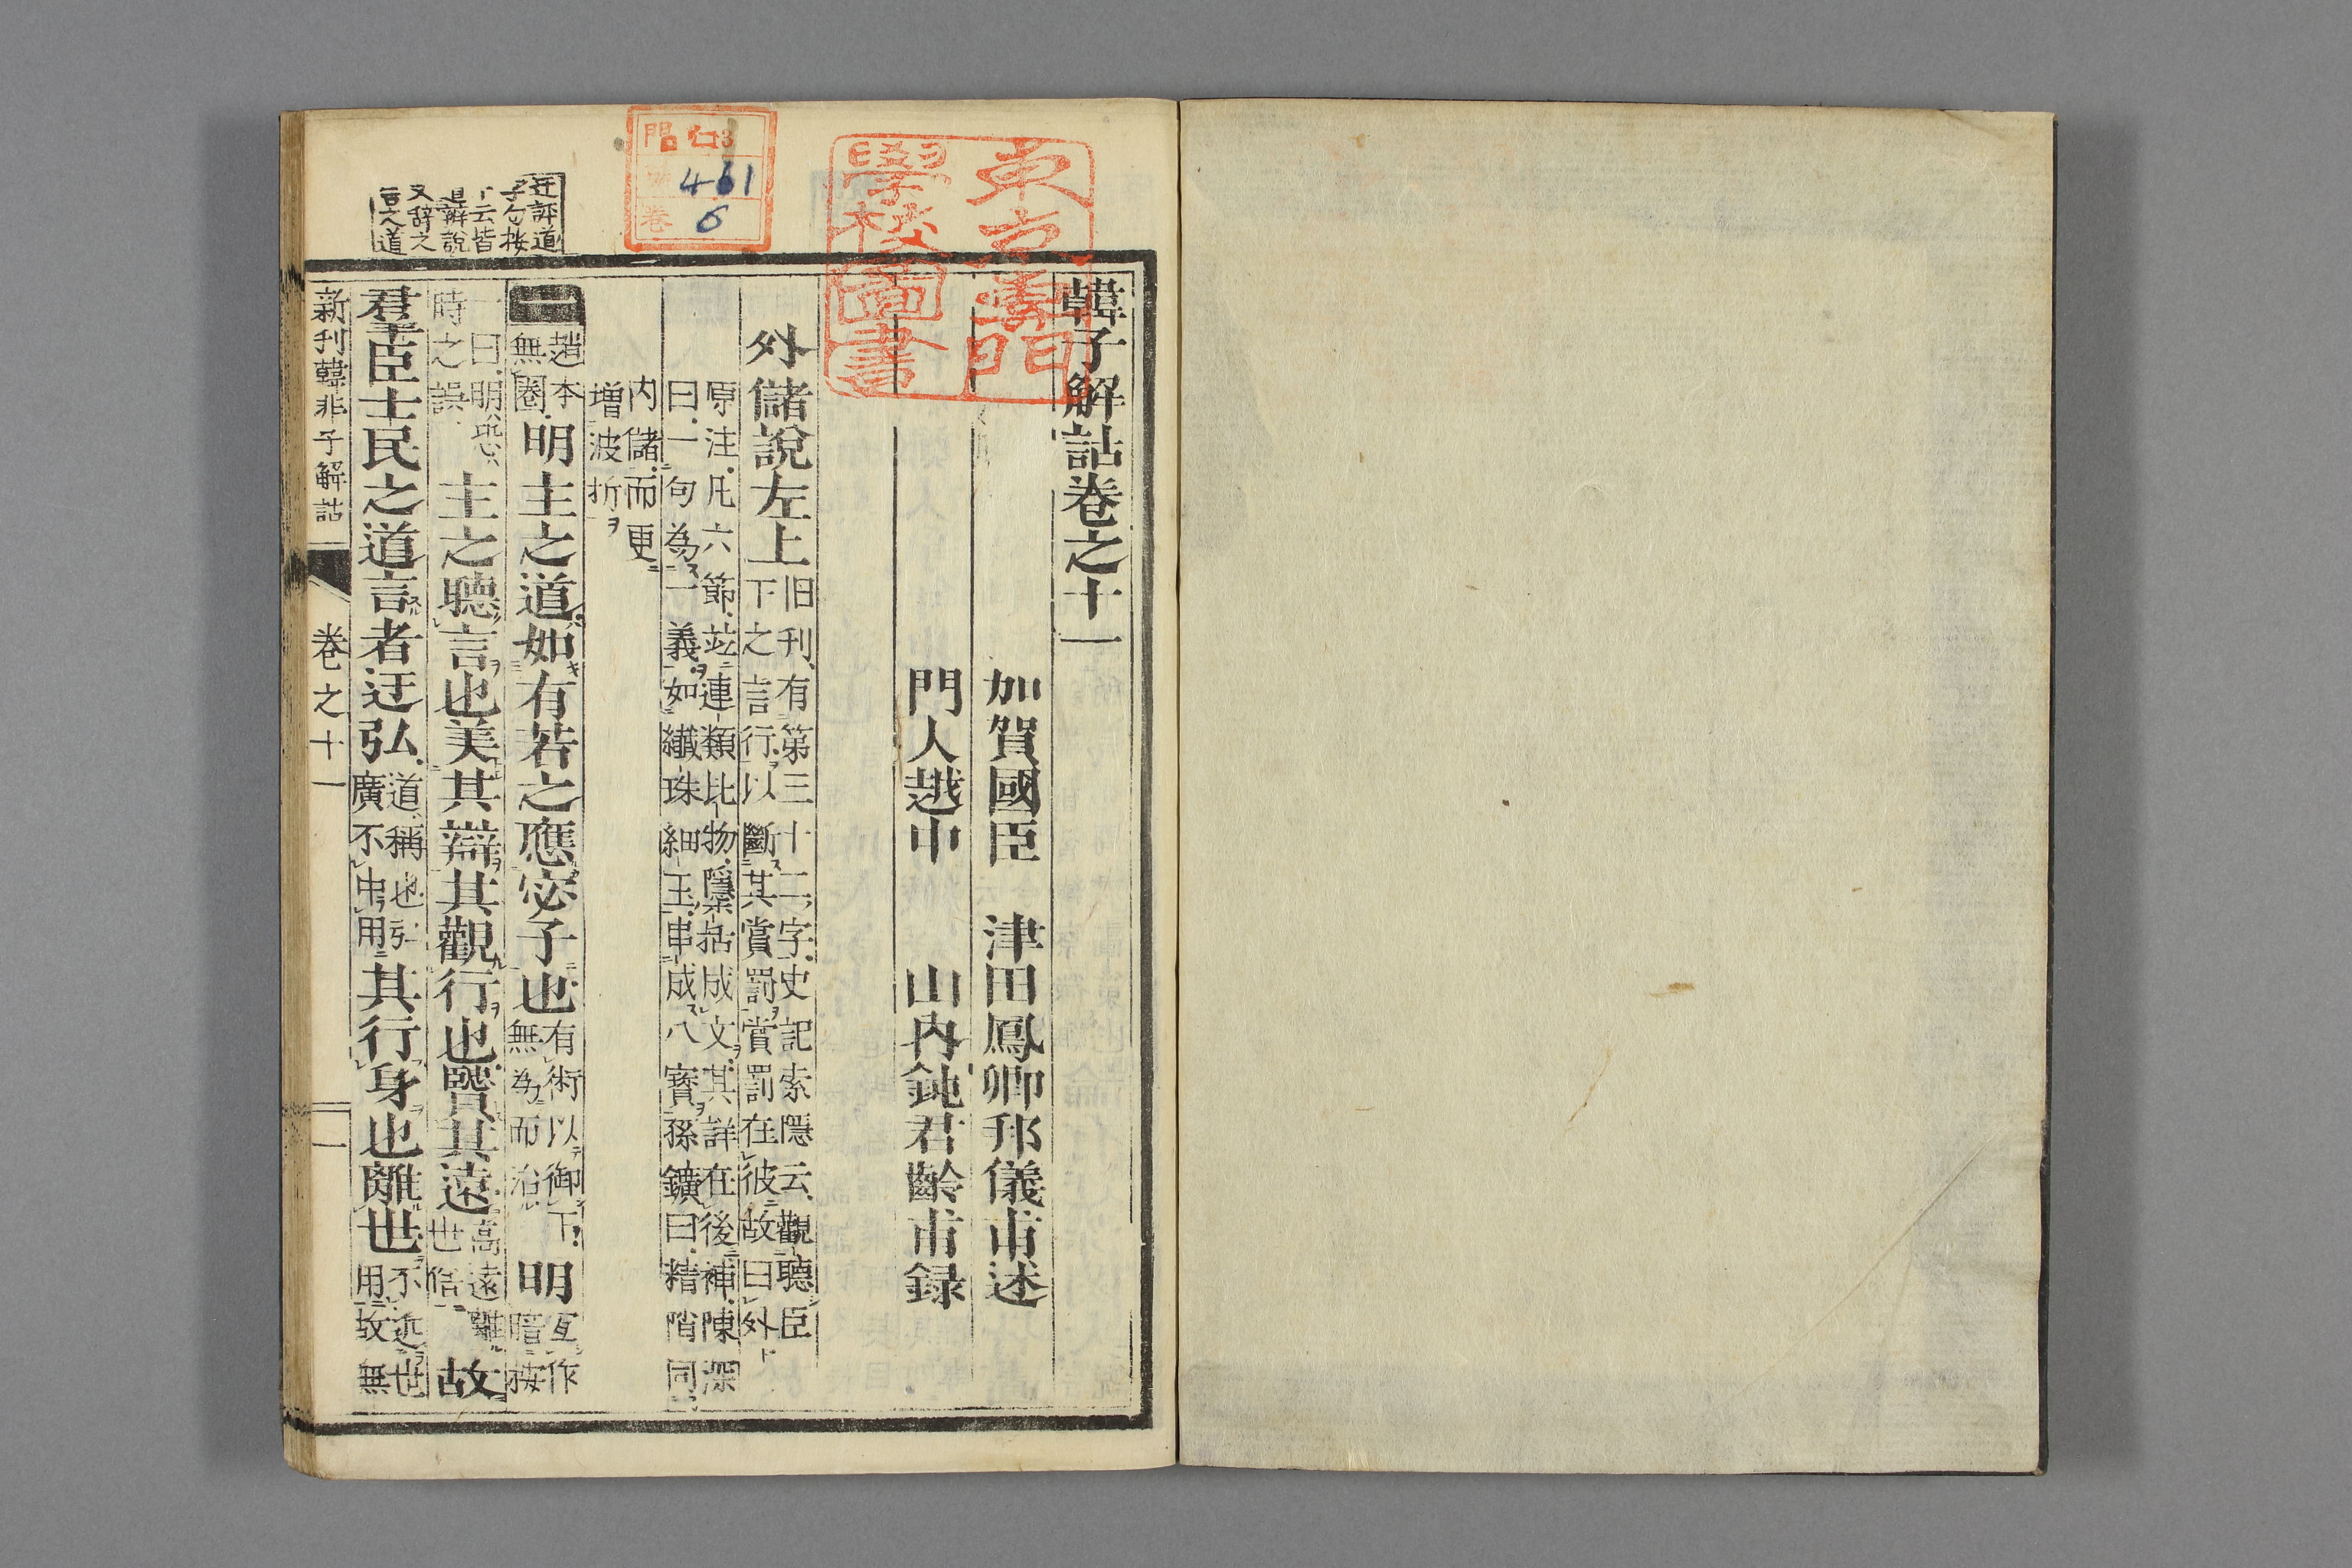 韓子解詁卷之十一
加賀國臣 津田鳳卿邦儀甫述
門人越中 山内鈍君齡甫録
外儲說左上
旧刊有第三十二字史記索隱云觀聽臣
下之言行以斷其賞罰賞罰在彼故曰外
原注凡六節竝連類比物隱栝成文其詳在後補陳深
曰一句為一義如纖珠細玉串成八寶孫鑛曰精陗同
内儲而更
増波折
二
趙本
無圈
明主之道如有若之應宓子也
有術以御下
無為而治
明
互作
暗按
一曰明恐
時之誤
主之聽言也美其辯其觀行也賢其遠
高遠離
世俗
故
君羣臣士民之道言者迂弘
道稱也弘
廣不中用
其行身也離世
不近世
用故無
新刊韓非子解詁
卷之十一
一
迂評道
子勺按
下云皆
道辯說
文辞之
言之道
東京專門
學校圖書
門 仁3
461
卷 6